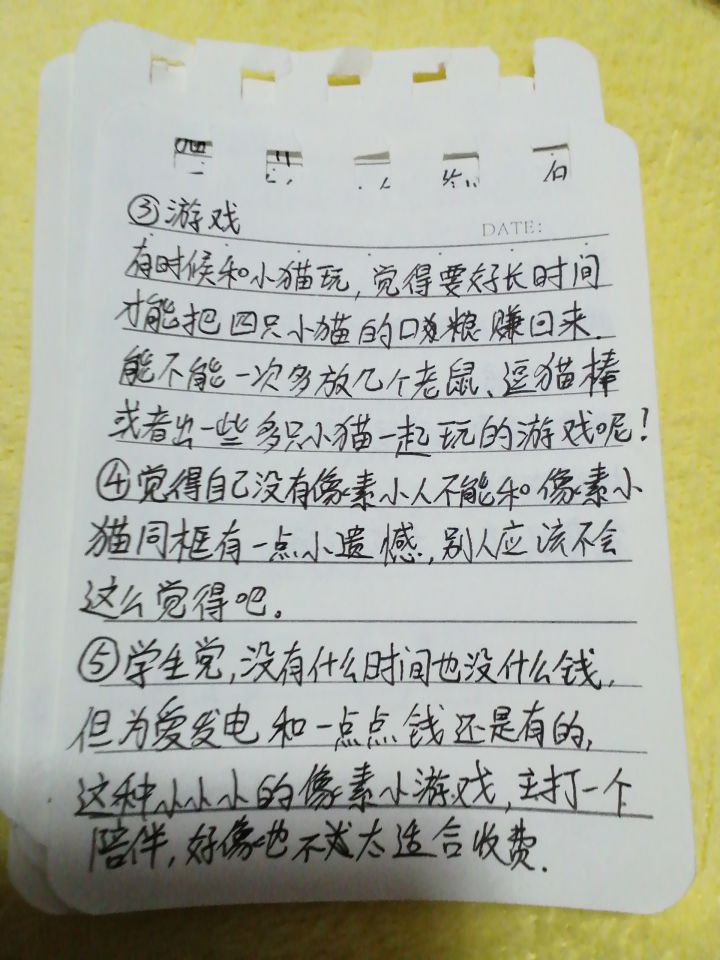 ③游戏
DATE:
有时候和小猫玩,觉得要好长时间
才能把四只小猫的口粮赚回来.
能不能一次多放几个老鼠、逗猫棒
或者出一些多只小猫一起玩的游戏呢!
④觉得自己没有像素小人不能和像素小
猫同框有一点小遗憾,别人应该不会
这么觉得吧。
⑤学生党,没有什么时间也没什么钱,
但为爱发电和一点点钱还是有的,
这种小小小的像素小游戏,主打一个
陪伴,好像也不太适合收费.